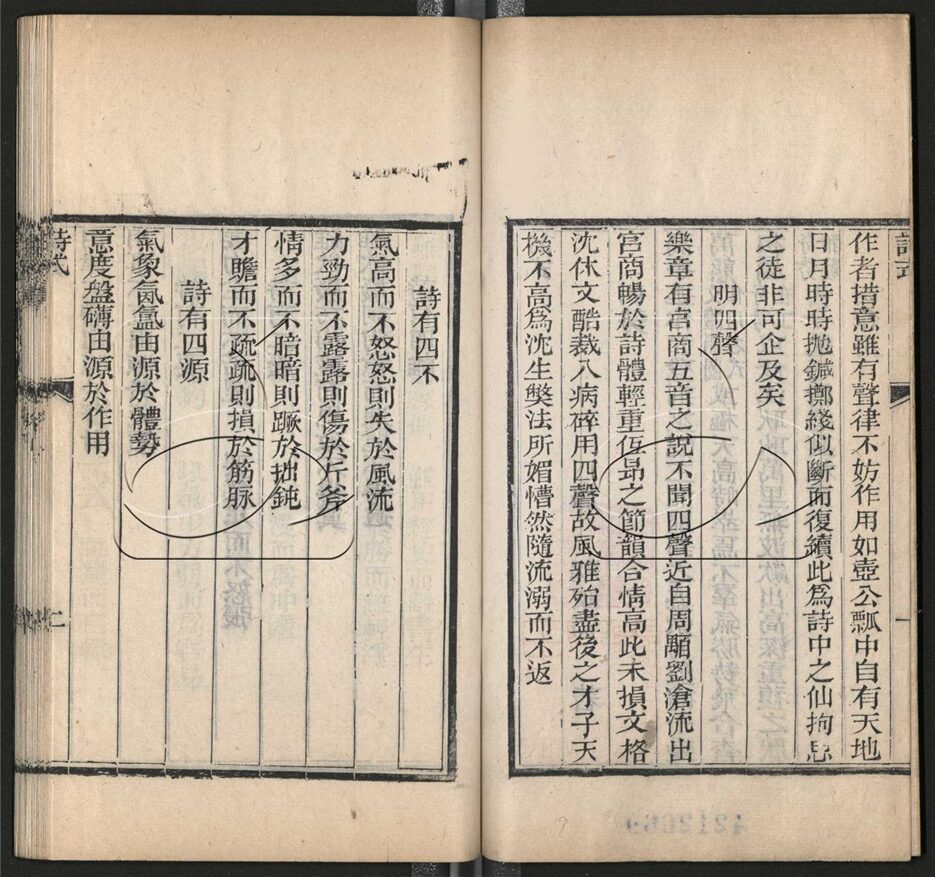 作者措意雖有聲律不妨作用如壺公瓢中自有天地
日月時時抛鍼擲綫似斷而復續此爲詩中之仙拘忌
之徒非可企及矣
明四聲
樂章有宮商五音之說不聞四聲近自周顒劉滄流出
宮商暢於詩體輕重低昻之節韻合情高此未損文格
沈休文酷裁八病碎用四聲故風雅殆盡後之才子天
機不高爲沈生獘法所媚懵然隨流溺而不返
詩有四不
氣高而不怒怒則失於風流
力勁而不露露則傷於斤斧
情多而不暗暗則蹶於拙鈍
才贍而不疏疏則損於筋脉
詩有四源
氣象氤氳由源於體勢
意度盤礴由源於作用
詩式
二